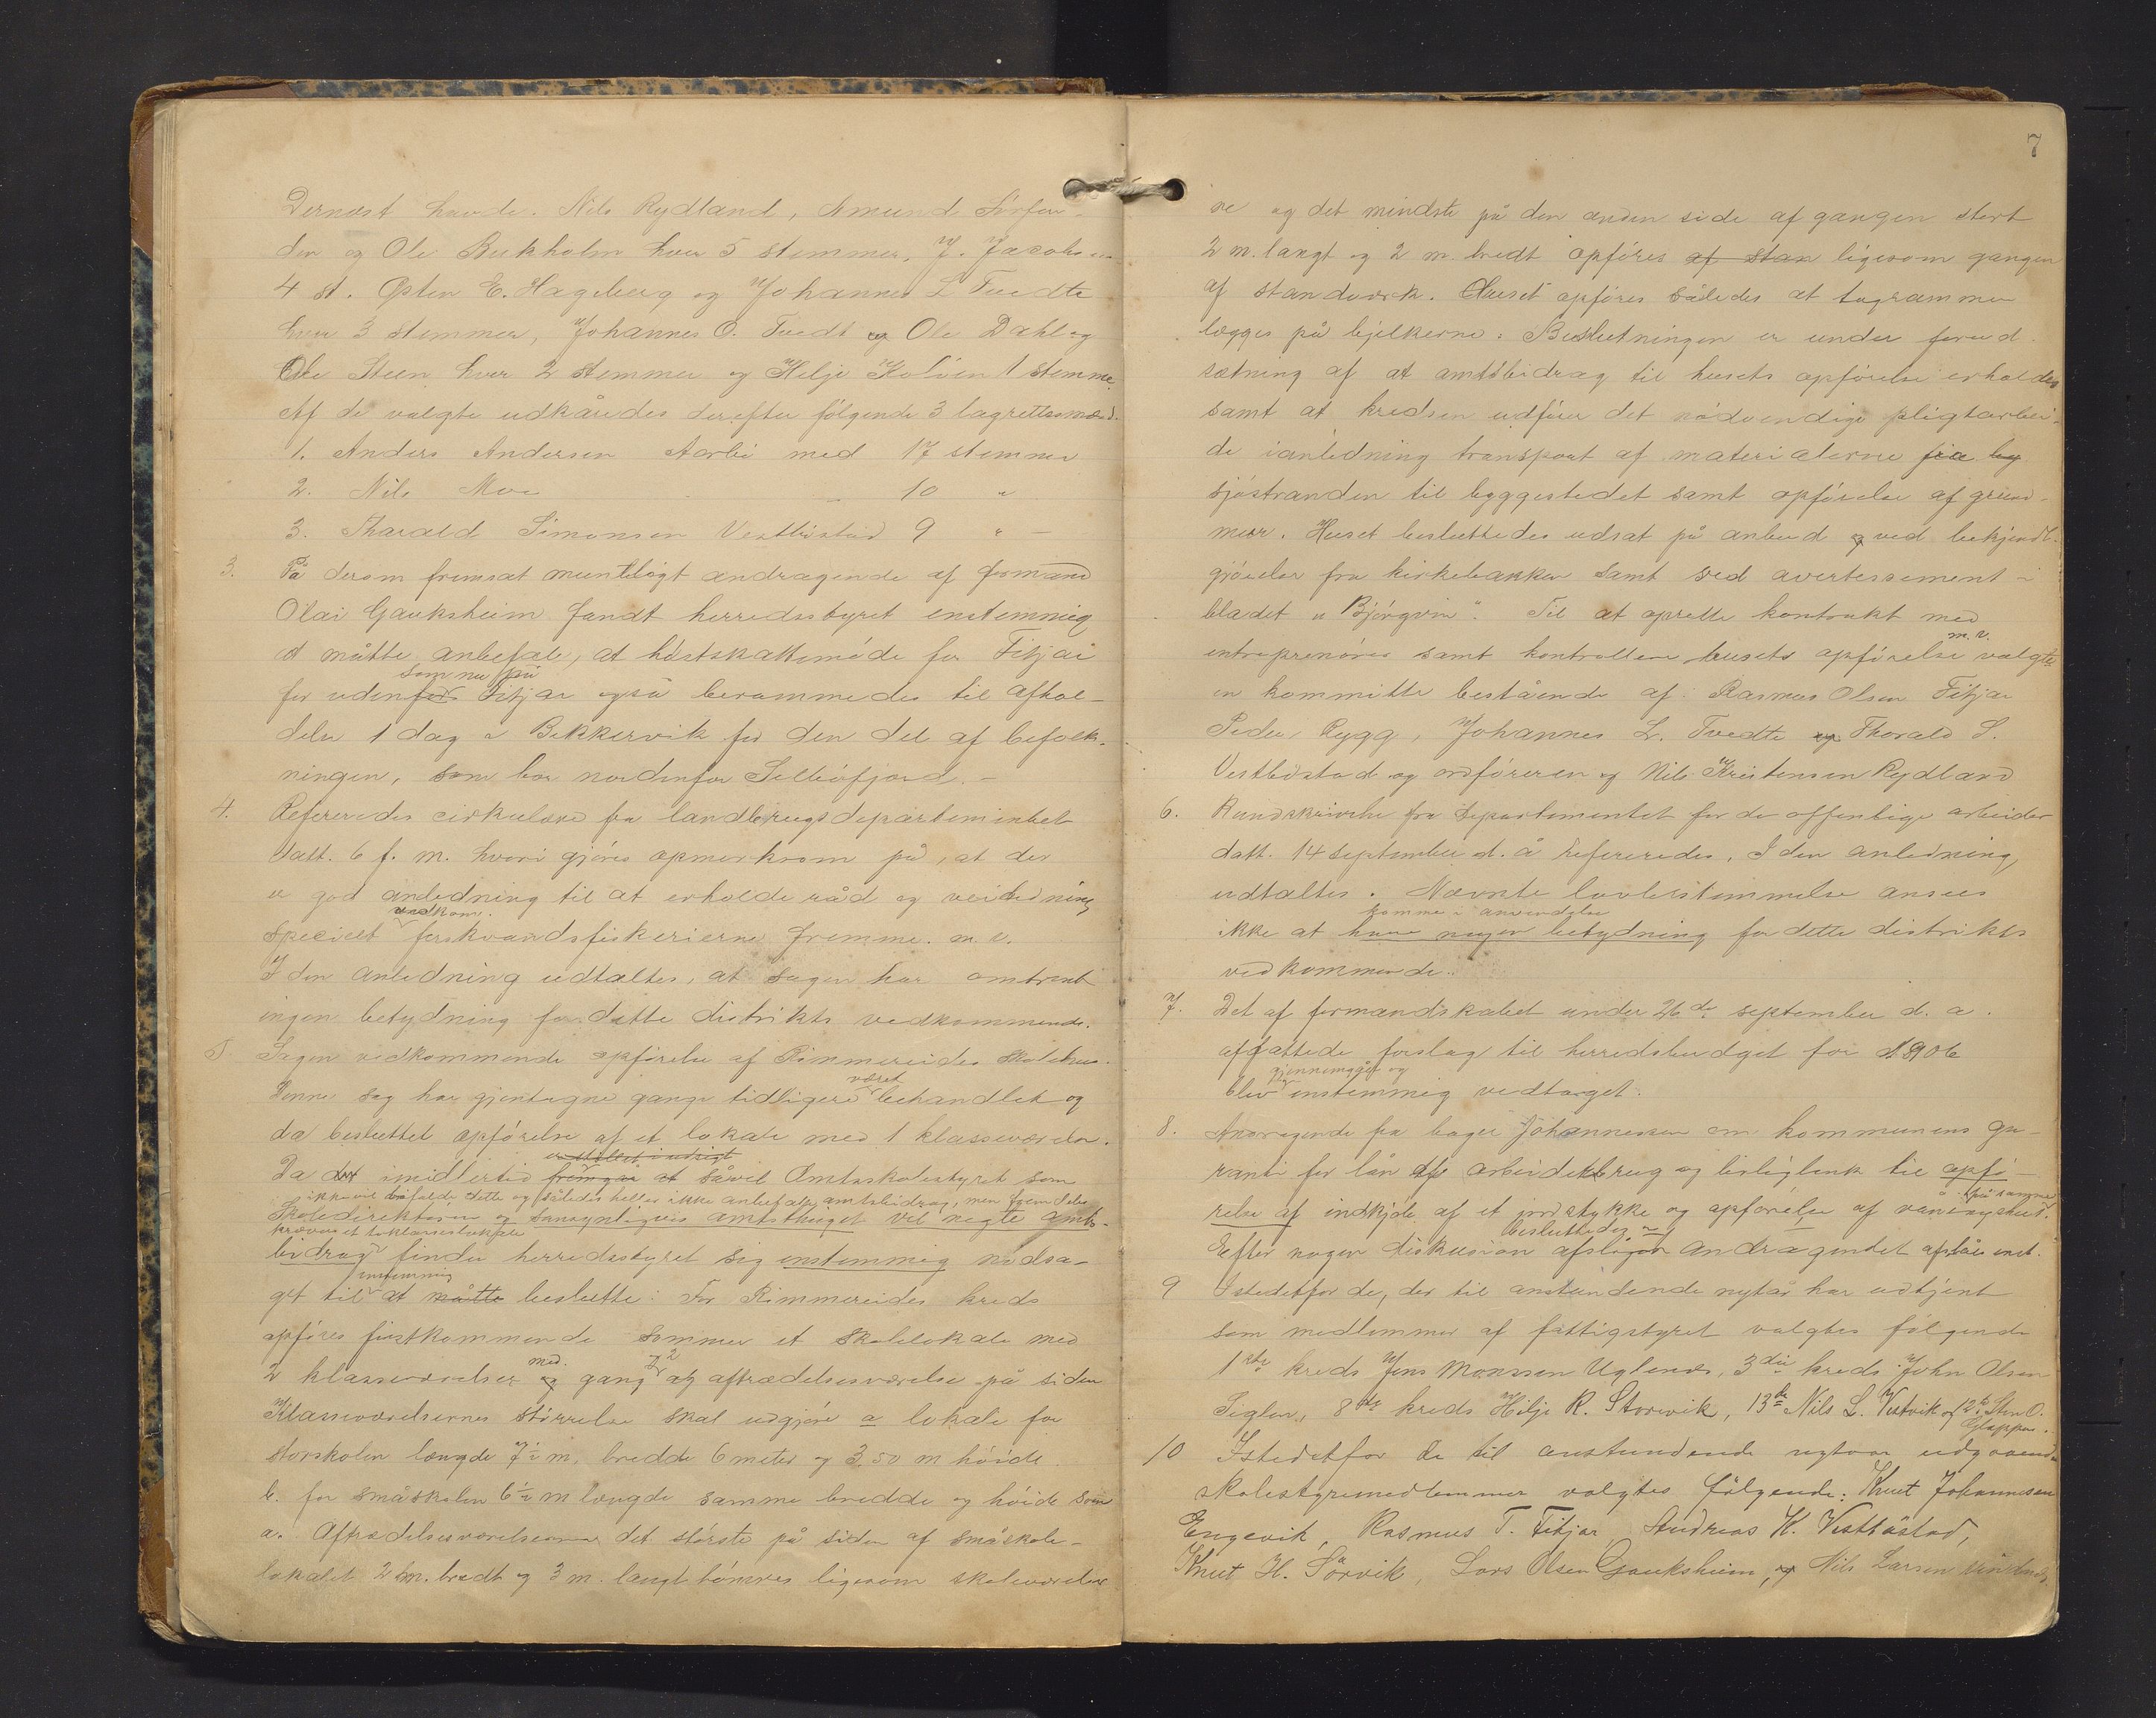 Dernæst havde. Nils Rydland, Amund Sörfon-
den og Ole Bukholm hver 5 stemmer, J. Jacobsen
4 st. Østen E. Hageberg og Johannes L Tvedte
hver 3 stemmer, Johannes O. Tvedt og Ole Dahl og
Ole Steen hver 2 stemmer og Helje Kolöen 1 stemme.
Af de valgte udkåredes derefter følgende 3 lagrettemænd.
1. Anders Andersen Aarbö med 17 stemmer
2. Nils Moe — 10 "
3. Tharald Simonsen Vestböstad 9 " —
3. På derom fremsat muntligt andragende af formand
Olai Gauksheim fandt herredsstyret enstemmig
at måtte anbefale, at höstskattemöde for Fitjar
som nu på
for udenfor Fitjar også berammedes til afhol-
delse 1 dag i Bekkervik for den del af befolk-
ningen, som bor nordenfor Selböfjord. —
4. Refereredes cirkulære fra landbrugsdepartementet
datt. 6 f. m. hvori gjöres opmerksom på, at der
er god anledning til at erholde råd og veiledning
vedkom.
specielt ferskvandsfiskerierne fremme. m. v.
I den anledning udtaltes, at sagen har omtrent
ingen betydning for dette distrikts vedkommende.
5 Sagen vedkommende opförelse af Rimmereides skolehus.
været
Denne sag har gjentagne gange tidligere behandlet og
da besluttet opförelse af et lokale med 1 klasseværelse.
er stillet i udsigt
Da det imidlertid fremgår at såvel Amtsskolestyret som
ikke vil bifalde dette og således heller ikke anbefale amtsbidrag, men fremdeles
Skoledirektøren og sansynligvis amtsthinget vil negte amts-
kræver et toklasseslokale
bidrag finder herredsstyret sig enstemmig nödsa-
enstemmig
get til at måtte beslutte: For Rimmereides kreds
opföres förstkommende sommer et skolelokale med
med. og 2
2 klasseværelser og gang og aftrædelsesværelse på siden
Klasseværelsernes störrelse skal udgjöre a lokale for
storskolen længde 7½ m, bredde 6 meter og 3,50 m höide.
b. for småskolen 6½ m længde samme bredde og höide som
a. Aftrædelsesværelserne det störste på siden af småskole-
lokalet 2 m. bredt og 3 m. langt tömres ligesom skoleværelse
7
ne og det mindste på den anden side af gangen stort
2 m. langt og 2 m. bredt opföres af stan ligesom gangen
af standværk. Huset opföres således at tagrammen
lægges på bjelkerne: Beslutningen er under forud-
sætning af at amtsbidrag til husets opförelse erholdes
samt at kredsen udförer det nödvendige pligtarbei-
de ianledning transport af materialerne fra by
sjöstranden til byggestedet samt opförelse af grund-
mur. Huset besluttedes udsat på anbud og ved bekjendt-
gjörelse fra kirkebakken samt ved avertissement i
bladet "Björgvin". Til at oprette kontrakt med
m. v.
entreprenören samt kontrollere husets opförelse valgtes
en kommitte bestående af: Rasmus Olsen Fitjar
Peder Rygg, Johannes L. Tvedte og Thorald S.
Vestböstad og ordföreren og Nils Kristensen Rydland
6. Rundskrivelse fra departementet for de offentlige arbeider
datt. 14 september d. å refereredes. I den anledning,
udtaltes. Nævnte lovbestemmelse ansees
komme i anvendelse
ikke at have nogen betydning for dette distrikts
vedkommende.
7. Det af formandskabet under 26de september d. a.
affattede forslag til herredsbudget for 1906
gjennemgået og
blev enstemmig vedtaget.
8. Andragende fra bager Johannessen om kommunens ga-
ranti for lån af arbeiderbrug og boligbank til opfö-
på samme
relse af indkjöb af et jordstykke og opförelse af våningshus.
besluttedes
Efter nogen diskusion afslåes andragendet afslået enst.
9 Istedetfor de, der til anstundende nytår har udtjent
som medlemmer af fattigstyret valgtes fölgende
1ste kreds Jens Monssen Uglenæs, 3die kreds John Olsen
Siglen, 8de kreds Hilje R. Storevik, 13de Nils L. Vestvik og 12te Sten O.
Gloppen.
10 Istedetfor de til anstundende nytaar udgaaende
skolestyremedlemmer valgtes fölgende: Knut Johannesen
Engevik, Rasmus T. Fitjar, Andreas K. Vestböstad,
Knut H. Sörvik, Lars Olsen Gauksheim, og Nils Larsen